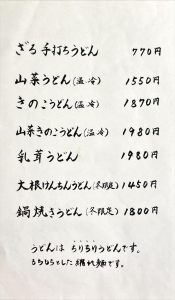 ざる手打ちうどん 770円
山菜うどん(温・冷) 1550円
きのこうどん(温・冷) 1870円
山菜きのこうどん(温・冷) 1980円
乳茸うどん 1980円
大根けんちんうどん(冬限定) 1450円
鍋焼きうどん(冬限定) 1800円
うどんは ちりちりうどんです。
ちりちりとした縮れ麺です。